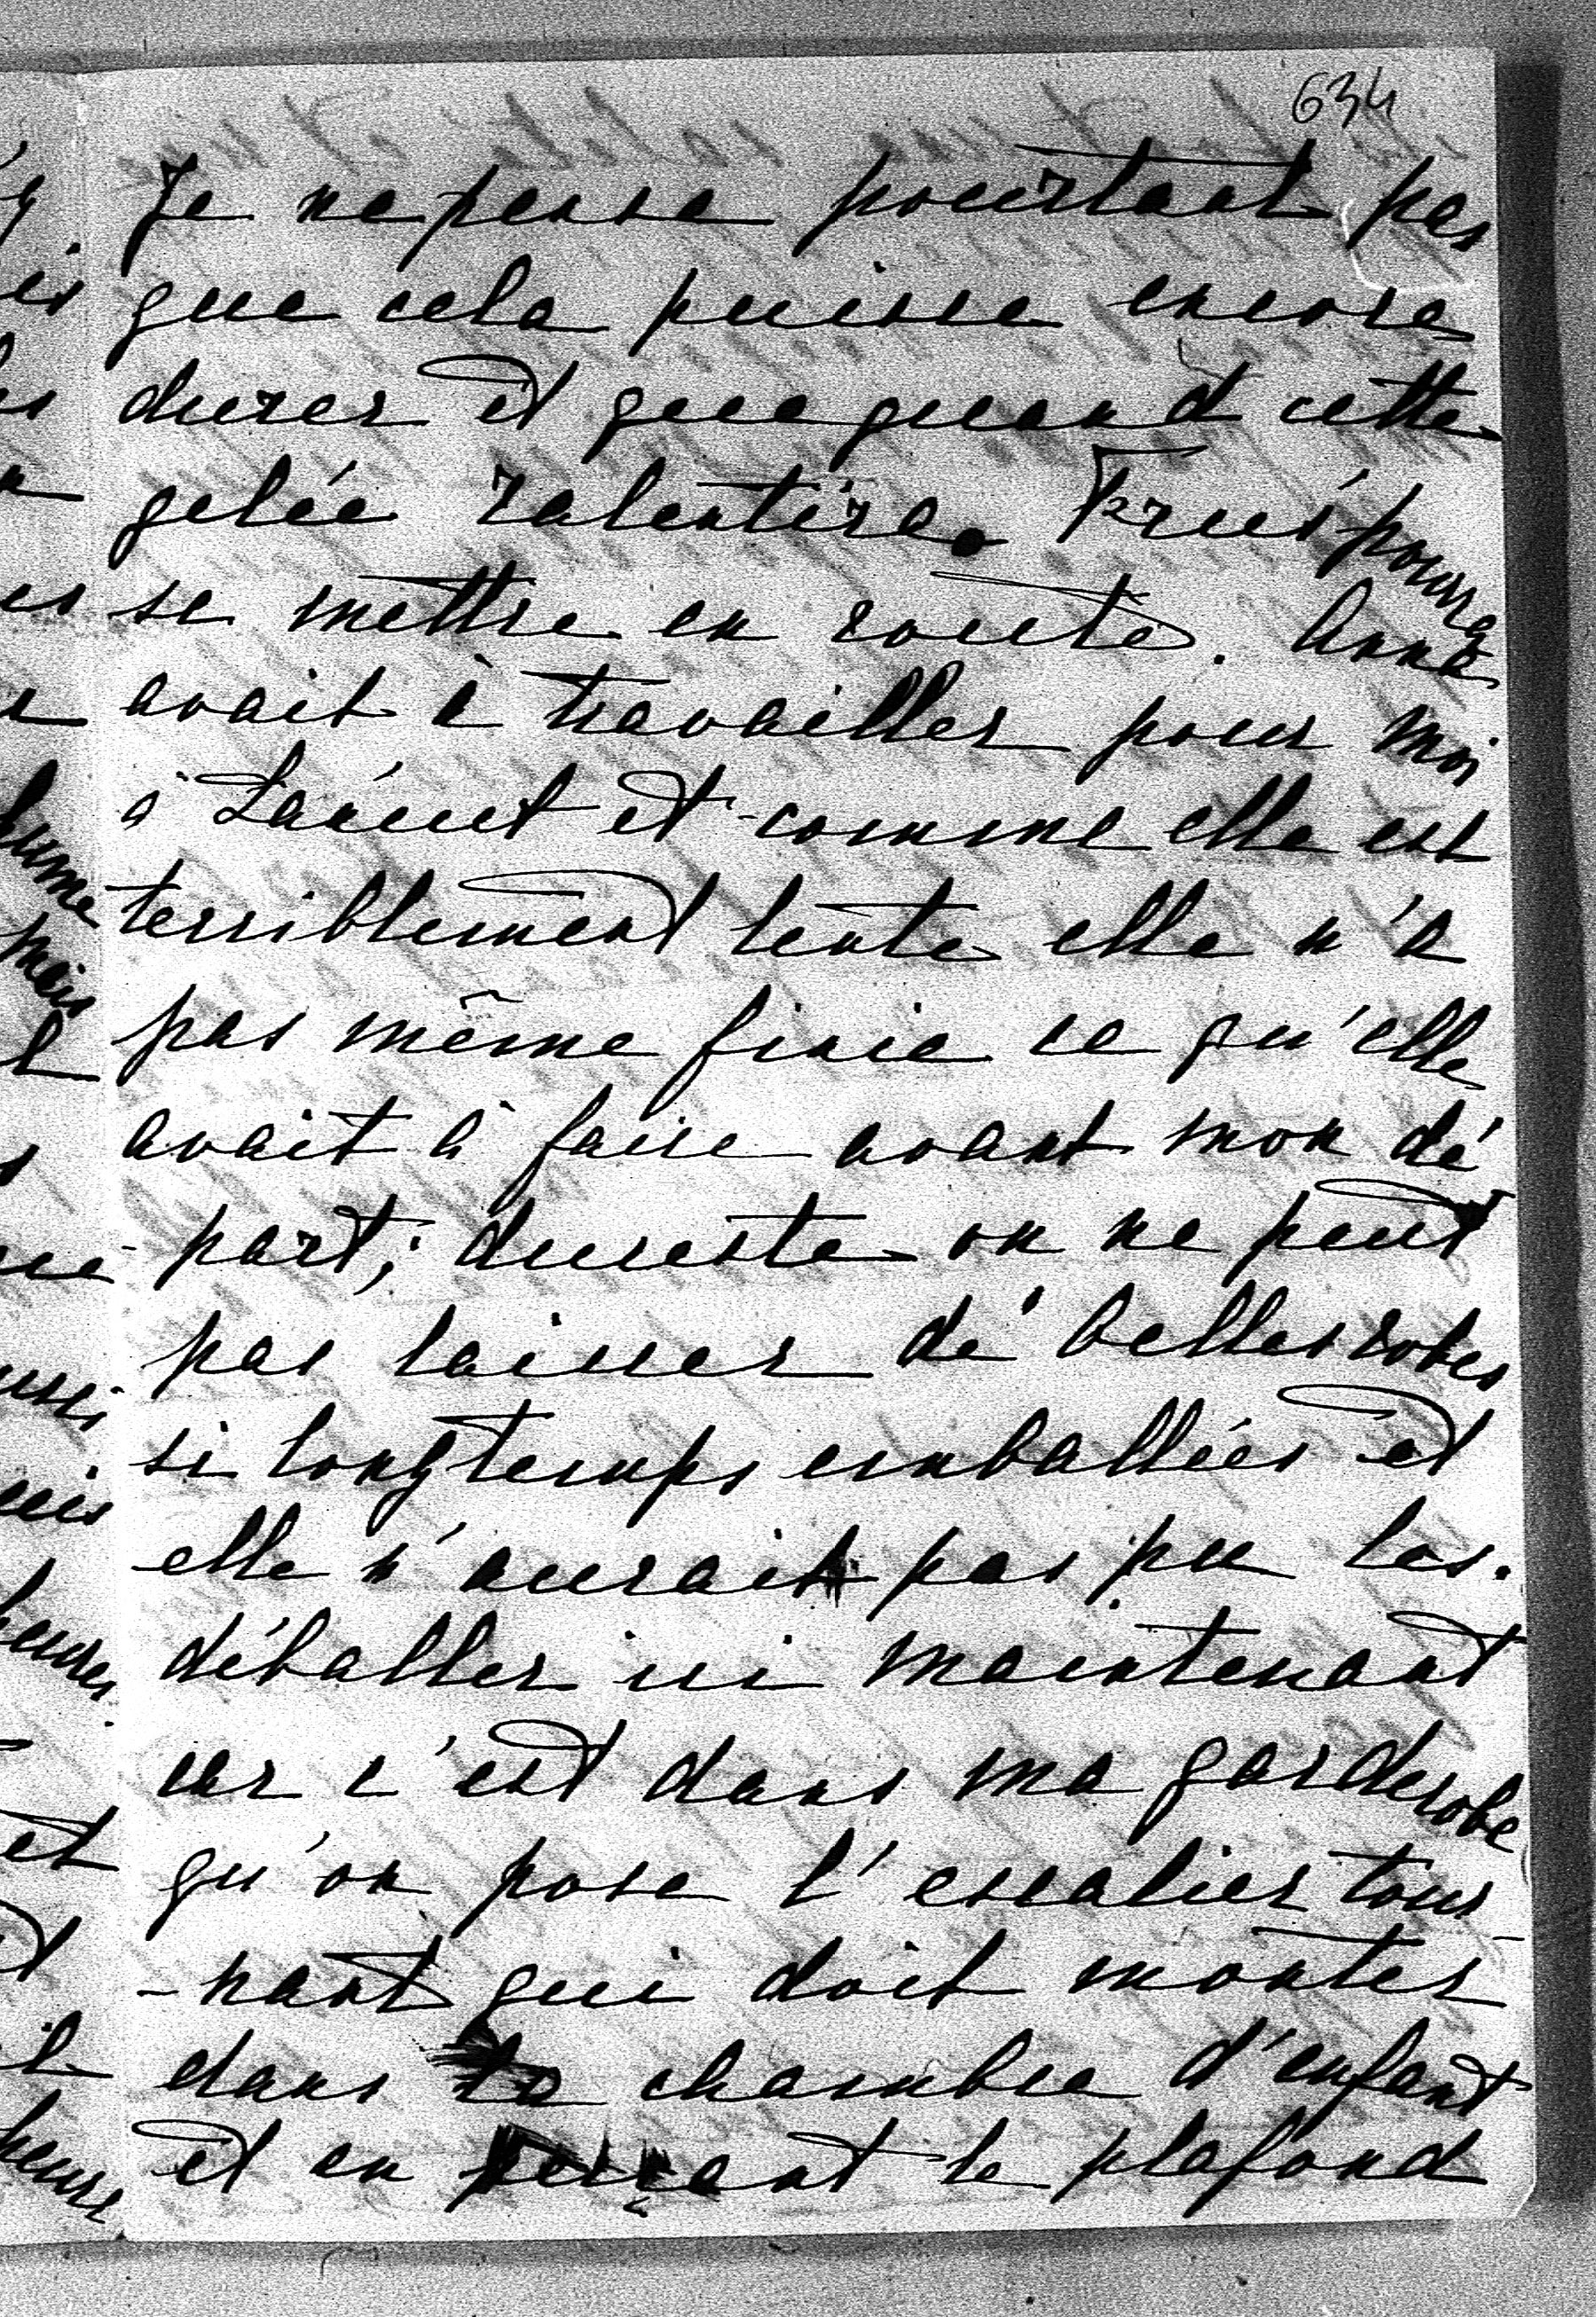 634
Je ne pense pourtant pas
que cela puisse encore
durer et que quand cette
gelée ralentira. pourra
se mettre en route. Anna
avait à travailler pour moi
à Lańcut et comme elle est
terriblement lente elle n'a
pas même finie ce qu'elle
avait à faire avant mon dé
part; dureste on ne peut
pas laisser de belles robes
si longtemps emballées et
elle n'aurait pas pu les
déballer ici maintenant
car c'est dans ma garderobe
qu'on pose l'escalier tour-
-nant qui doit monter
dans la chambre d'enfant
et en perçant le plafond